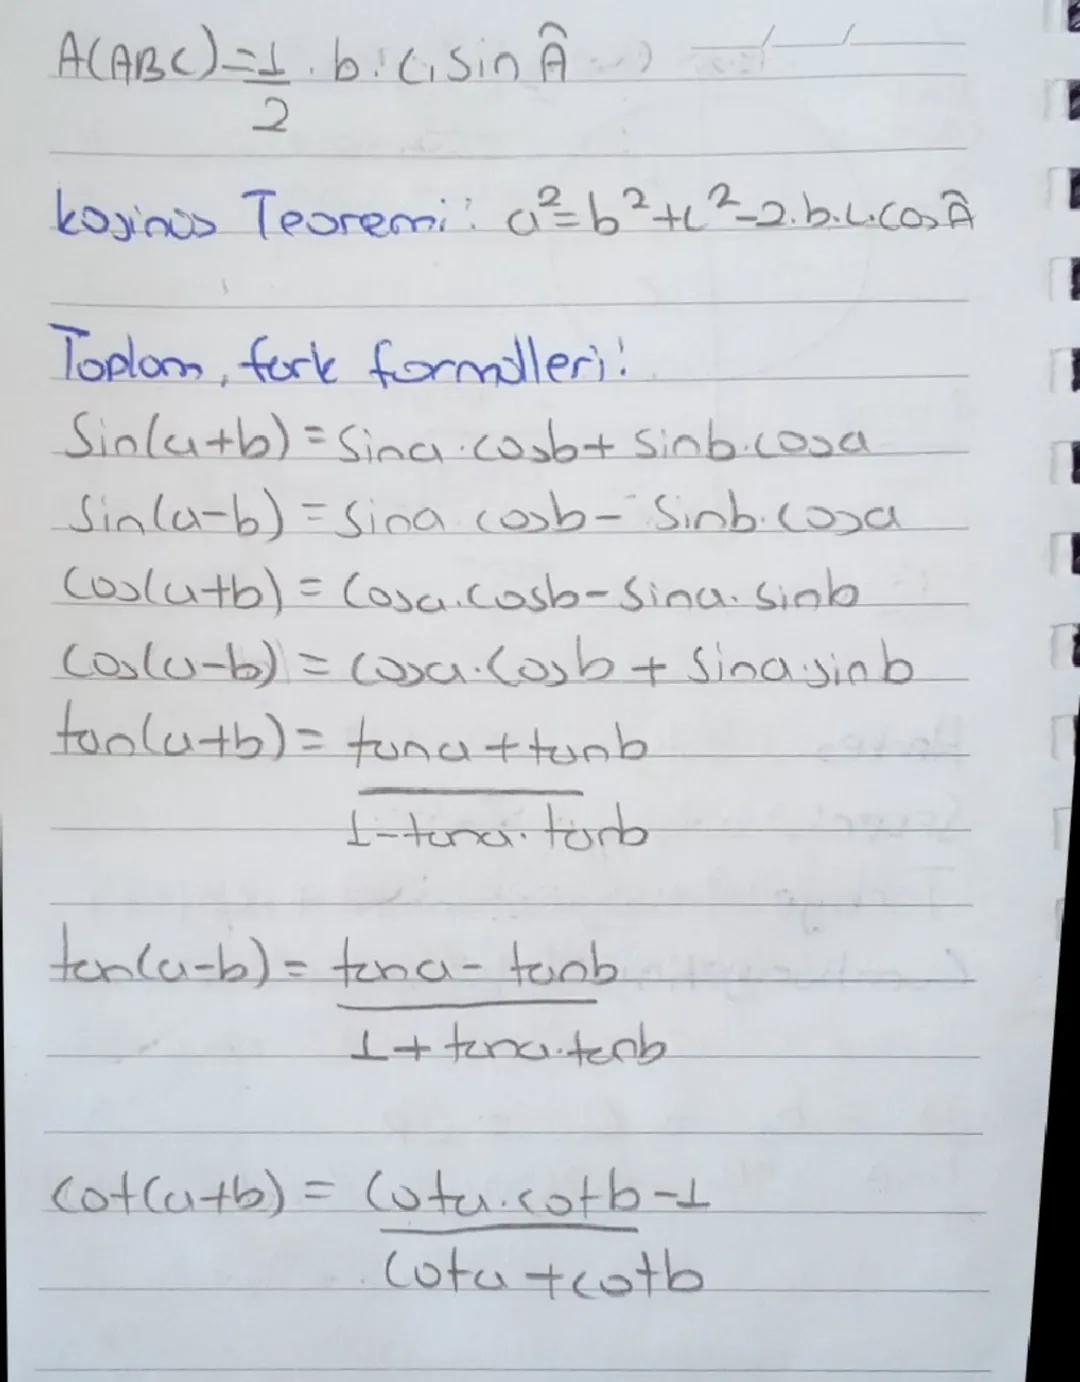 A(ABC)=1/2 . b . c . sin Â
kosinüs Teoremi: a²=b²+c²-2.b.c.cos Â
Toplam, fark formülleri:
Sin(a+b) = Sina . cosb + sinb . cosa
Sin(a-b) = Sina cosb - Sinb . cosa
Cos(a+b) = Cosa . cosb - Sina . Sinb
Cos(a-b) = cosa . Cosb + Sina . sinb
tan(a+b) = tana + tanb
1 - tana . tanb
tan(a-b) = tana - tanb
1 + tana . tanb
Cot(a+b) = Cota . cotb - 1
Cota + cotb